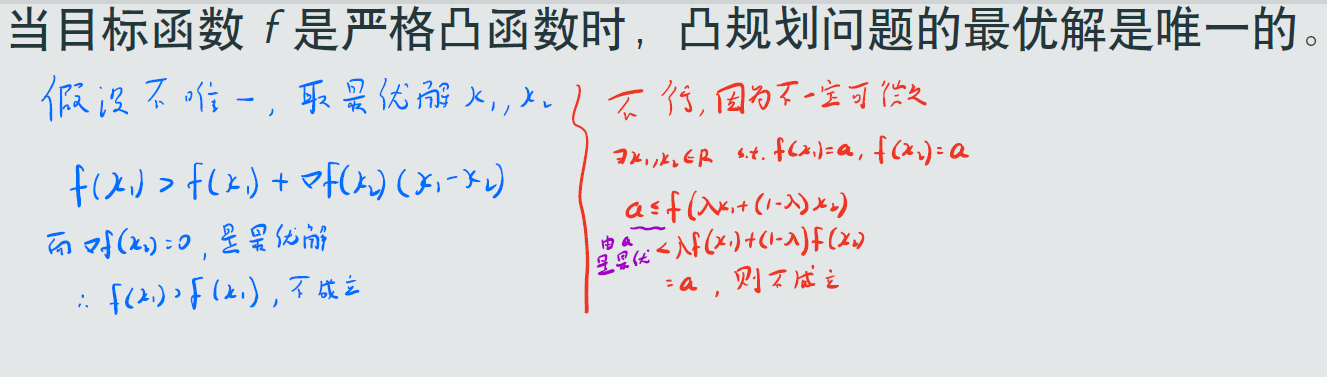 当目标函数 f 是严格凸函数时，凸规划问题的最优解是唯一的。
假设不唯一，取最优解 x₁, x₂
f(x₁) > f(x₁) + ∇f(x₂)(x₁-x₂)
而 ∇f(x₂)=0，是最优解
∴ f(x₁)>f(x₁)，不成立
不行，因为不一定可微
∃x₁,x₂∈R s.t. f(x₁)=a, f(x₂)=a
a ≤ f(λx₁+(1-λ)x₂)
由a是最优
< λf(x₁)+(1-λ)f(x₂)
= a，则不成立